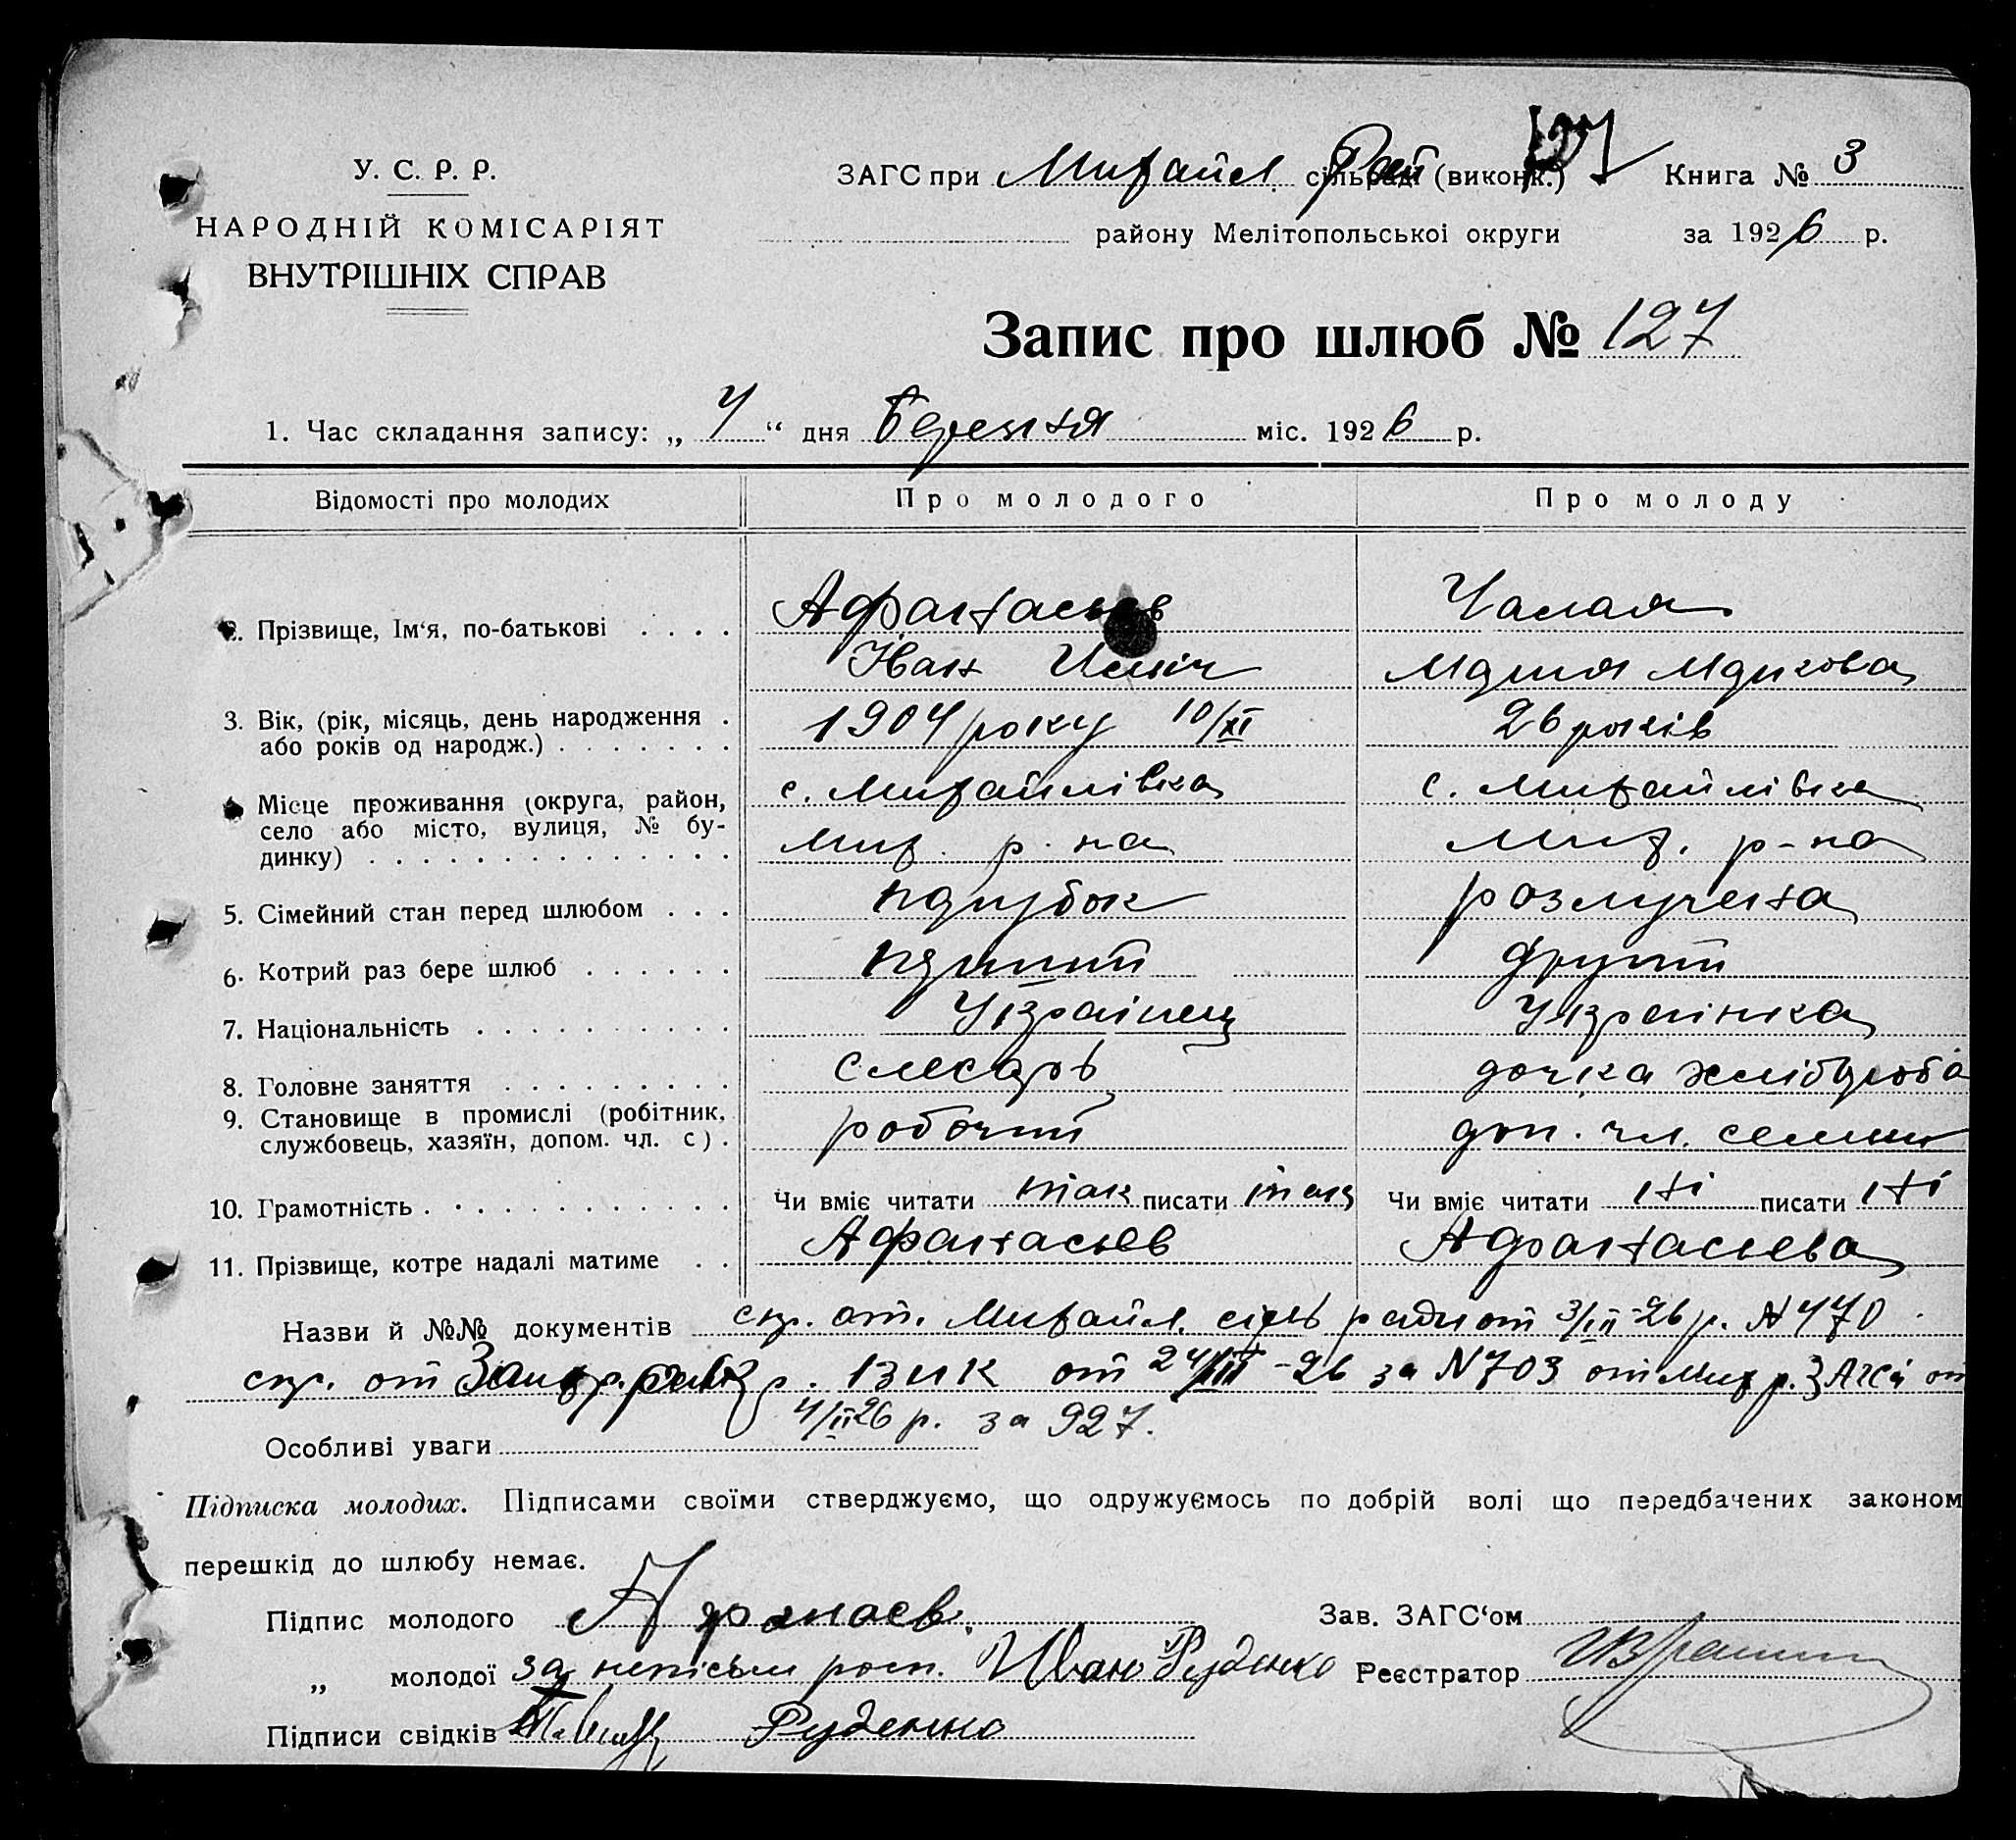 У. С. Р. Р.
НАРОДНІЙ КОМІСАРІЯТ
ВНУТРІШНІХ СПРАВ
ЗАГС при Михайл. сільраді (виконк.) Книга № 3
району Мелітопольської округи за 1926 р.
Запис про шлюб № 127
1. Час складання запису: „ 4 “ дня березня міс. 1926 р.
Відомості про молодих Про молодого Про молоду
2. Прізвище, Ім'я, по-батькові . . . . Афанасьєв Чалая
Іван Ілліч Марія Маркова
3. Вік, (рік, місяць, день народження . 1904 року 10/XI 26 років
або років од народж.) . . . . . . .
с. Михайлівка с. Михайлівка
4. Місце проживання (округа, район,
село або місто, вулиця, № бу-
динку) . . . . . . . . . . . . . . Мих. р-на Мих. р-на
5. Сімейний стан перед шлюбом . . . парубок розлучена
6. Котрий раз бере шлюб . . . . . . перший другий
7. Національність . . . . . . . . . . Українець Українка
8. Головне заняття . . . . . . . . . слесарь дочка хлібороба
9. Становище в промислі (робітник,
службовець, хазяїн, допом. чл. с) . робочий доп. чл. семьи
10. Грамотність . . . . . . . . . . . . Чи вміє читати так писати так Чи вміє читати ні писати ні
11. Прізвище, котре надалі матиме . . Афанасьєв Афанасьева
Назви й №№ документів спр. от. Михайл. сіль ради от 3/III-26 р. N 470
спр. от р. ВИК от 24/III-26 за N 703 от Мих. р. ЗАГСа от
4/II 26 р. за 927.
Особливі уваги
Підписка молодих. Підписами своїми стверджуємо, що одружуємось по добрій волі що передбачених законом
перешкід до шлюбу немає.
Підпис молодого Зав. ЗАГС'ом
„ молодої за неписьм росп. Иван Руденко Реєстратор
Підписи свідків Руденко